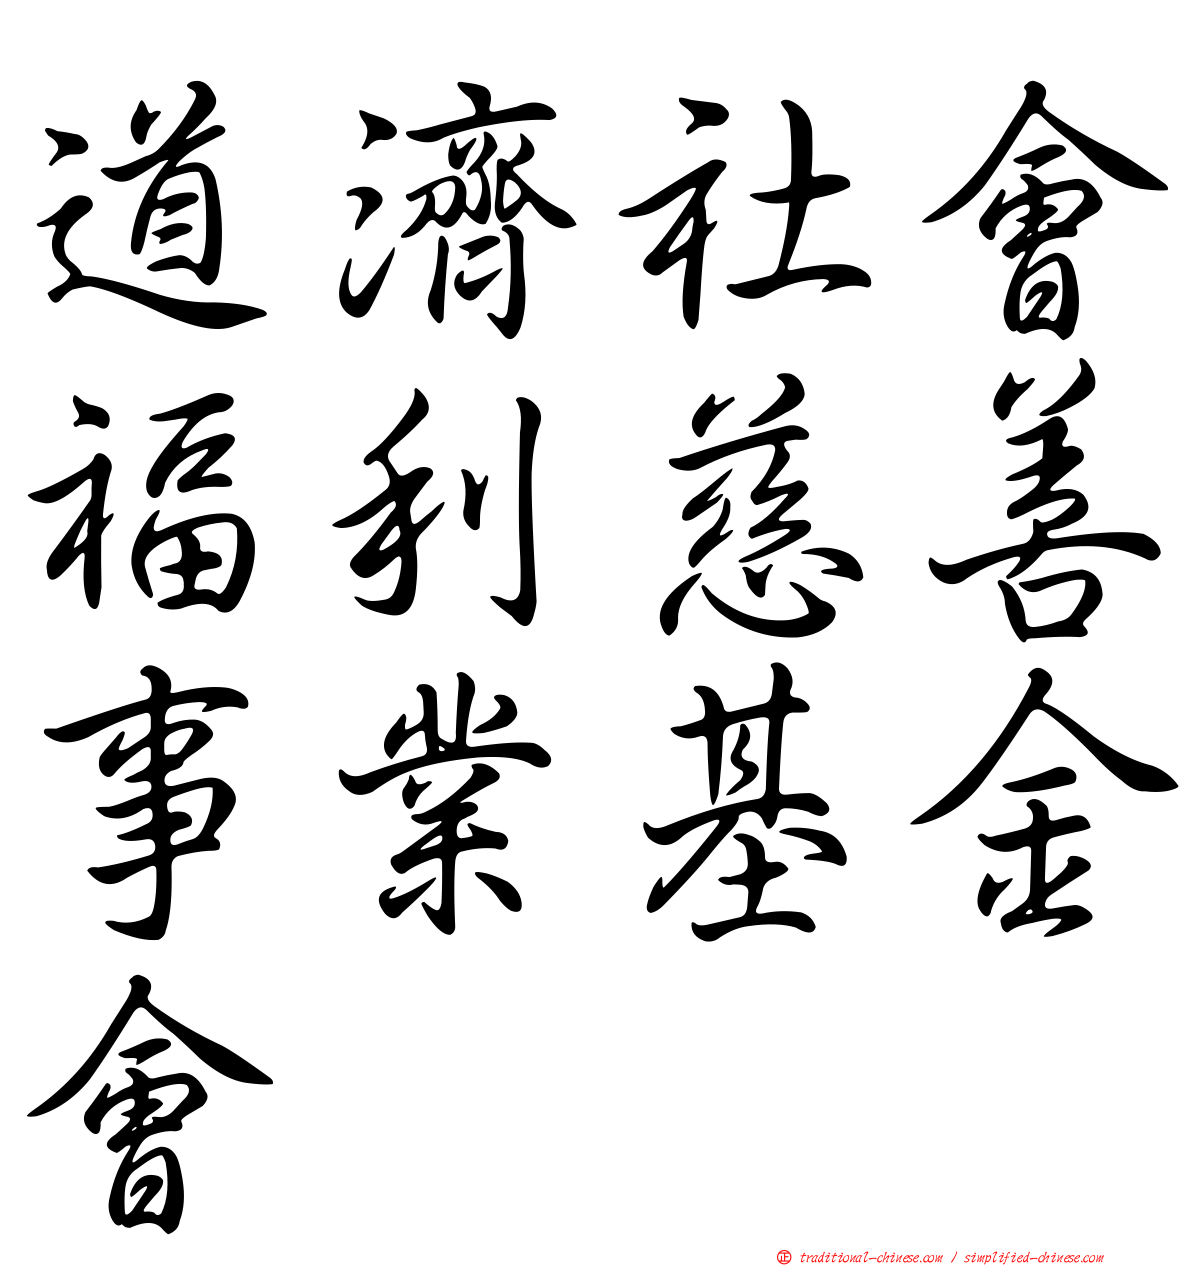 道濟社會
福利慈善
事業基金
會
㊣ traditional-chinese.com / simplified-chinese.com